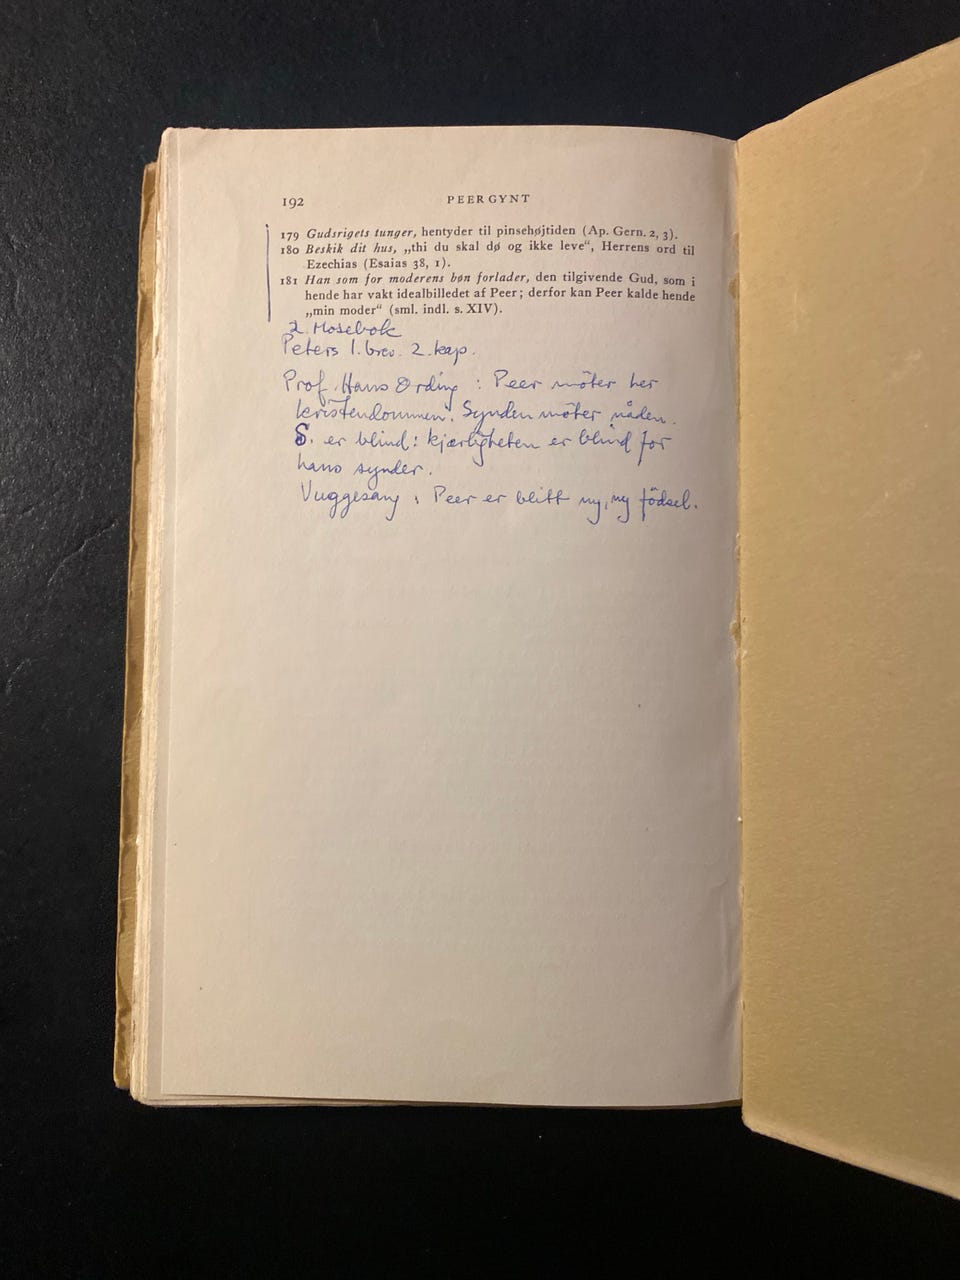 192 PEER GYNT
179 Gudsrigets tunger, hentyder til pinsehøjtiden (Ap. Gern. 2, 3).
180 Beskik dit hus, „thi du skal dø og ikke leve“, Herrens ord til
Ezechias (Esaias 38, 1).
181 Han som for moderens bøn forlader, den tilgivende Gud, som i
hende har vakt idealbilledet af Peer; derfor kan Peer kalde hende
„min moder“ (sml. indl. s. XIV).
2. Mosebok
Peters 1. brev. 2. kap.
Prof. Hans Ording : Peer möter her
kristendommen. Synden möter nåden.
S. er blind: kjærligheten er blind for
hans synder.
Vuggesang : Peer er blitt ny, ny födsel.